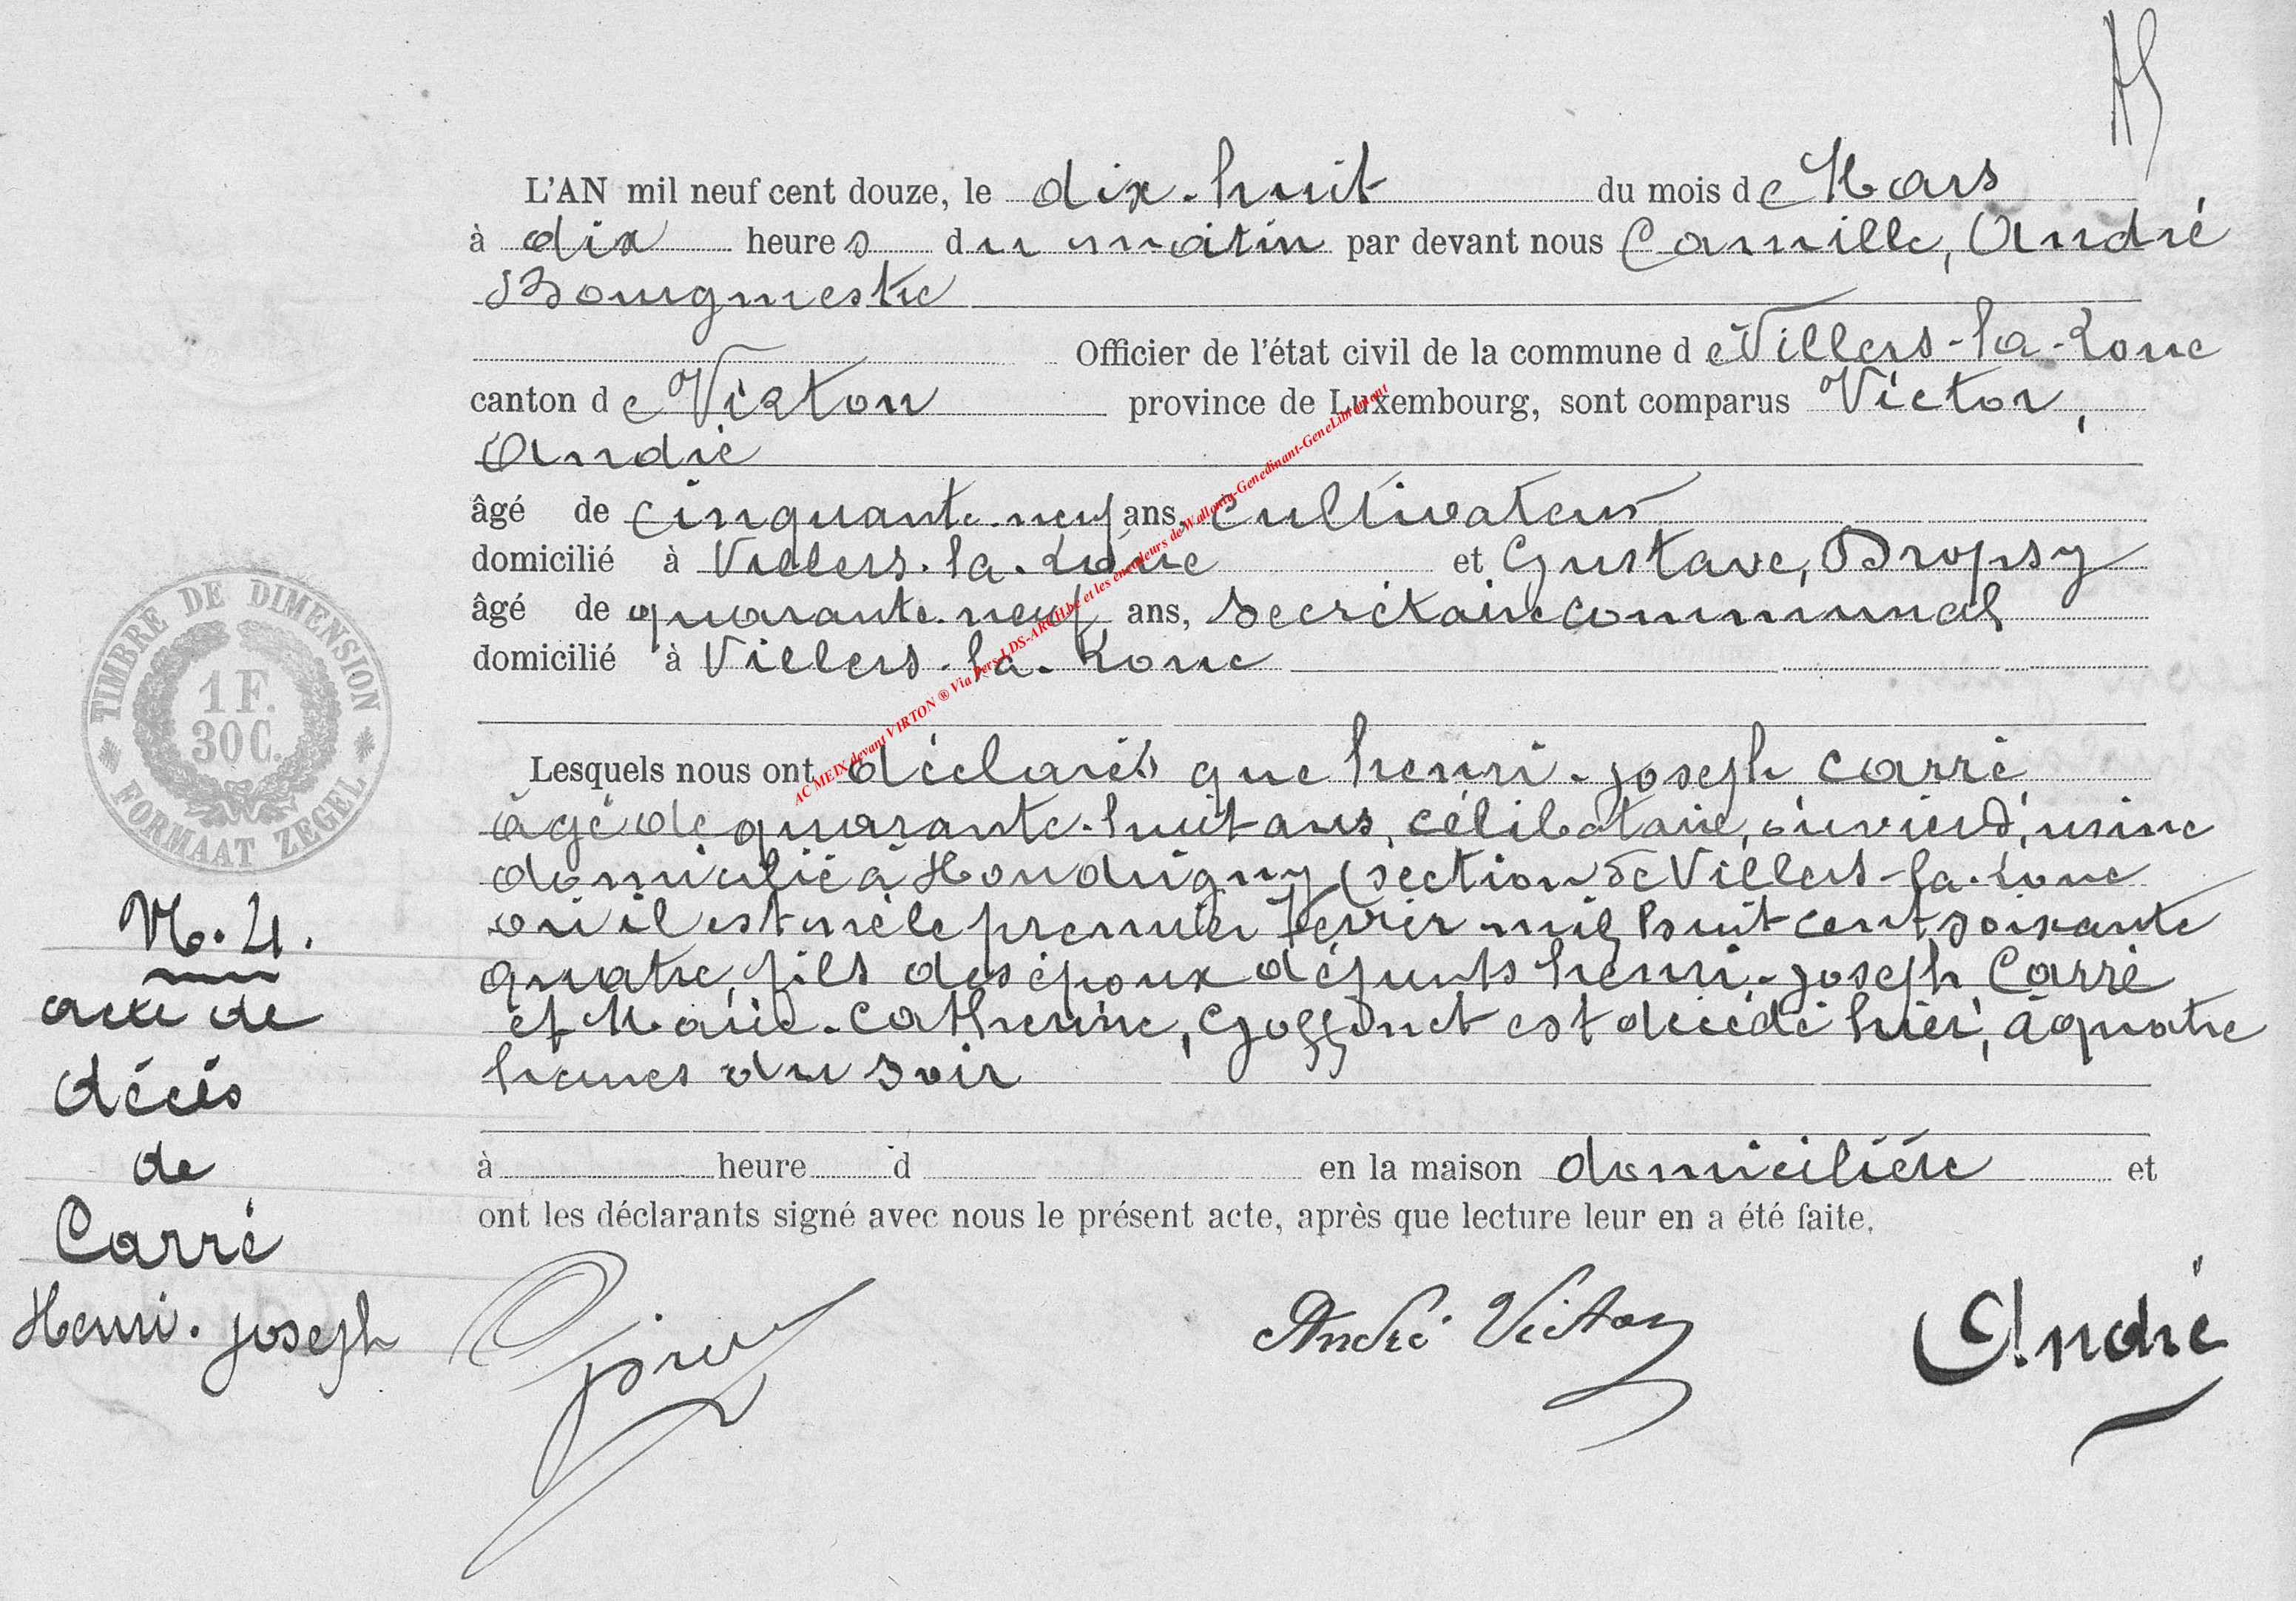 L'AN mil neuf cent douze, le dix-huit du mois de Mars
à dix heures du matin par devant nous Camille, André
Bourgmestre
Officier de l'état civil de la commune de Villers-la-Loue
canton de Virton province de Luxembourg, sont comparus Victor,
André
âgé de cinquante-neuf ans, Cultivateur
domicilié à Villers-la-Loue et Gustave, Dropsy
âgé de quarante-neuf ans, Secrétaire communal
domicilié à Villers-la-Loue
AC MEIX devant VIRTON ® Via Pers-LDS-ARCH.be et les encodeurs de Wallonia-Genedinant-GeneLibramont
TIMBRE DE DIMENSION
1 F.
30 C.
FORMAAT ZEGEL
Lesquels nous ont déclarés que henri-joseph Carré
âgé de quarante-huit ans, célibataire, ouvrier d'usine
domicilié à Houdrigny (section de Villers-la-Loue
où il est né le premier Fevrier mil huit cent soixante
quatre, fils des époux défunts henri-joseph Carré
et Marie-Catherine, Goffinet est décédé hier, à quatre
heures du soir
à heure d en la maison domicilière et
ont les déclarants signé avec nous le présent acte, après que lecture leur en a été faite.
N. 4.
acte de
décès
de
Carré
Henri-joseph
André Victor
C. André